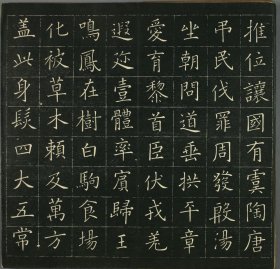 推位讓國有虞陶唐
弔民伐罪周發殷湯
坐朝問道垂拱平章
愛育黎首臣伏戎羌
遐迩壹體率賓歸王
鳴鳳在樹白駒食場
化被草木賴及萬方
盖此身髮四大五常